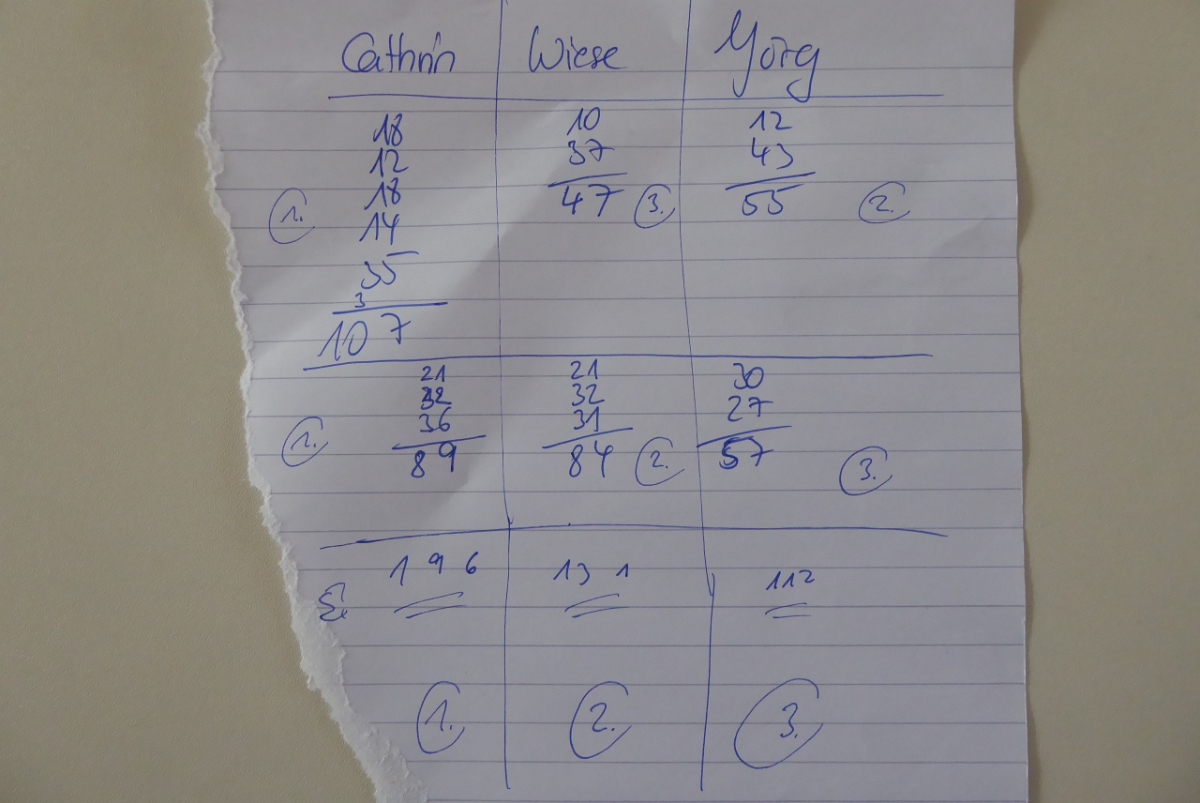 Cathrin Wiese Yörg
18 10 12
12 37 43
1. 18 47 3. 55 2.
14
35
3
107
21 21 30
32 32 27
1. 36 31
89 84 2. 57 3.
Σ 196 131 112
1. 2. 3.